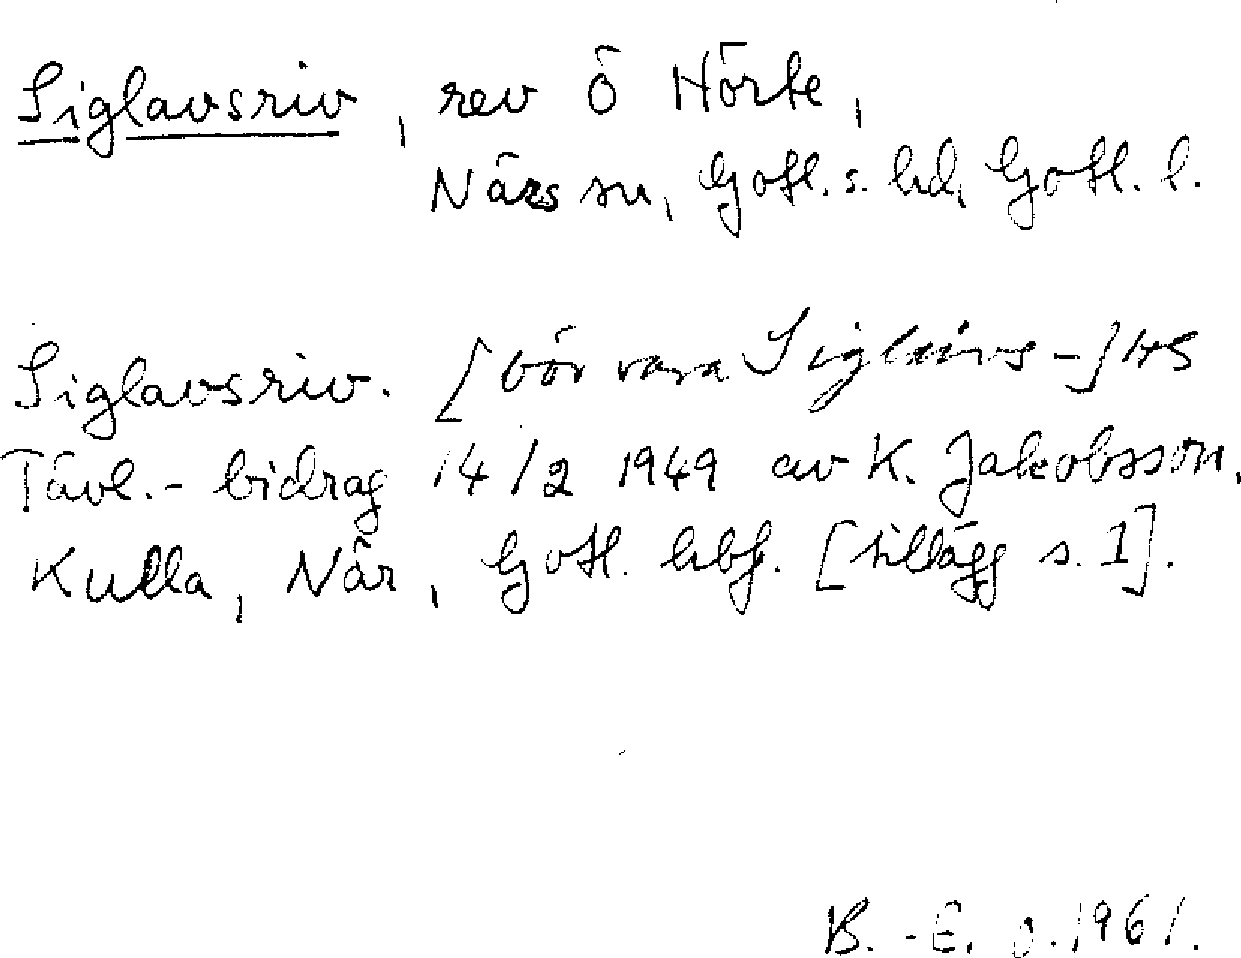 Siglavsriv, rev Ö Hörte,
Närs sn, Gotl. s. hd, Gotl. l.
Siglavsriv. [bör vara Siglairvs-] HS
Tävl.-bidrag 14/2 1949 av K. Jakobsson,
Kulla, När, Gotl. hbf. [tillägg s. 1].
B.-E. O. 1961.